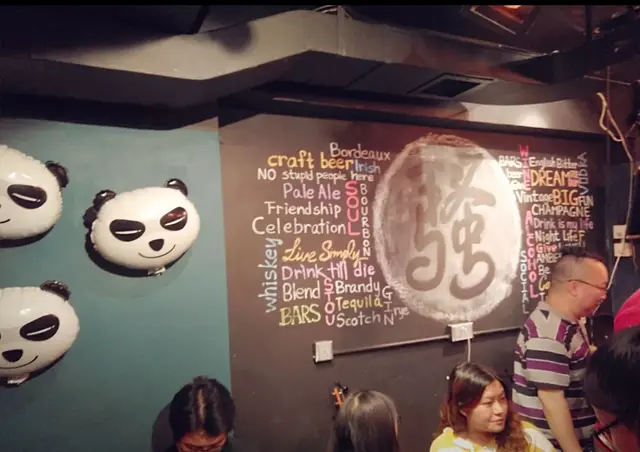 Bordeaux
craft beer Irish
NO stupid people here
Pale Ale
SOUL
BOURBON
Friendship
Celebration
whiskey
Live Simply
Drink till die
Blend
STOUT
Brandy
GIN
Tequila
rye
BARS
Scotch
骚
WINE
ALCOHOL
BARS
English Bitter
VODKA
beer
DREAM
Vintage
BIG
FUN
CHAMPAGNE
Drink is my life
Night Life
Give
SOCIAL
Be